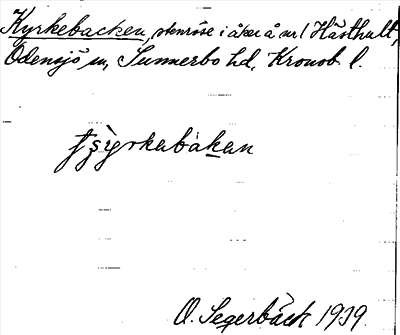 Kyrkebacken, stenröse i åker å nr 1 Hästhult,
Odensjö sn, Sunnerbo hd, Kronob. l.
O. Segerbäck 1939.